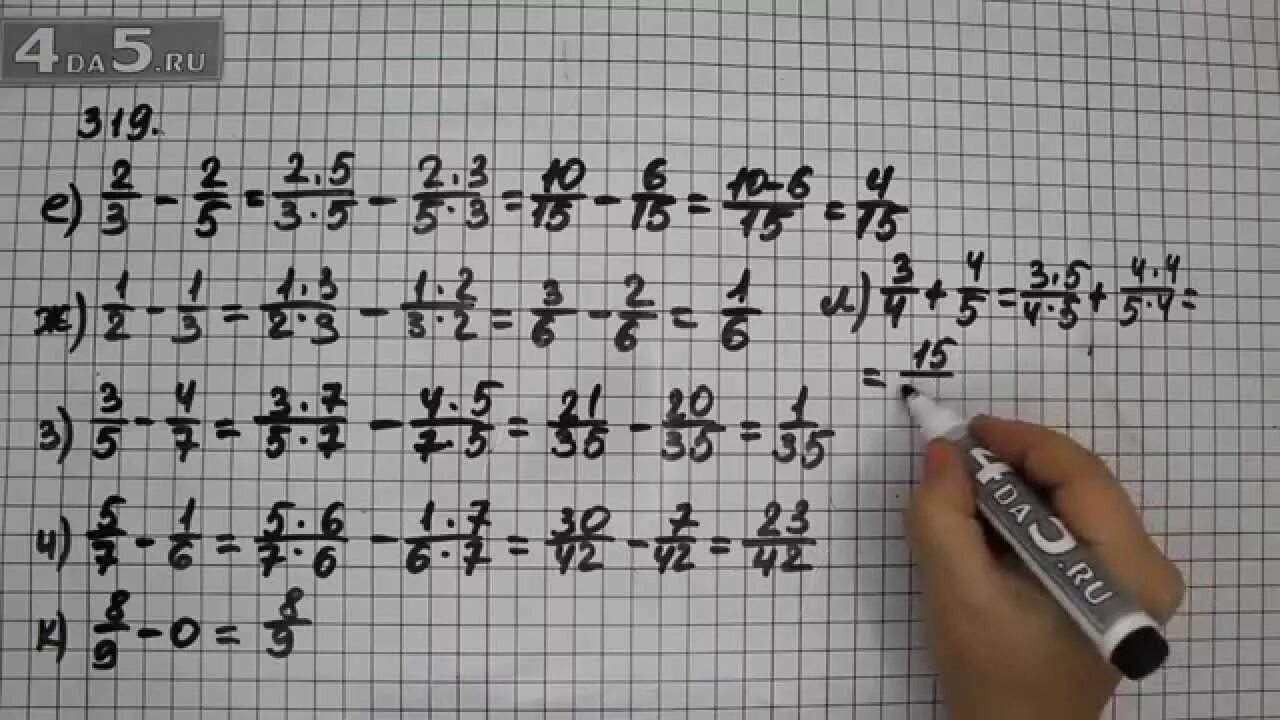 4DA5.RU
319.
е) 2/3 - 2/5 = 2·5/3·5 - 2·3/5·3 = 10/15 - 6/15 = 10-6/15 = 4/15
ж) 1/2 - 1/3 = 1·3/2·3 - 1·2/3·2 = 3/6 - 2/6 = 1/6
з) 3/5 - 4/7 = 3·7/5·7 - 4·5/7·5 = 21/35 - 20/35 = 1/35
и) 5/7 - 1/6 = 5·6/7·6 - 1·7/6·7 = 30/42 - 7/42 = 23/42
к) 8/9 - 0 = 8/9
л) 3/4 + 4/5 = 3·5/4·5 + 4·4/5·4 =
= 15/
4DA5.RU